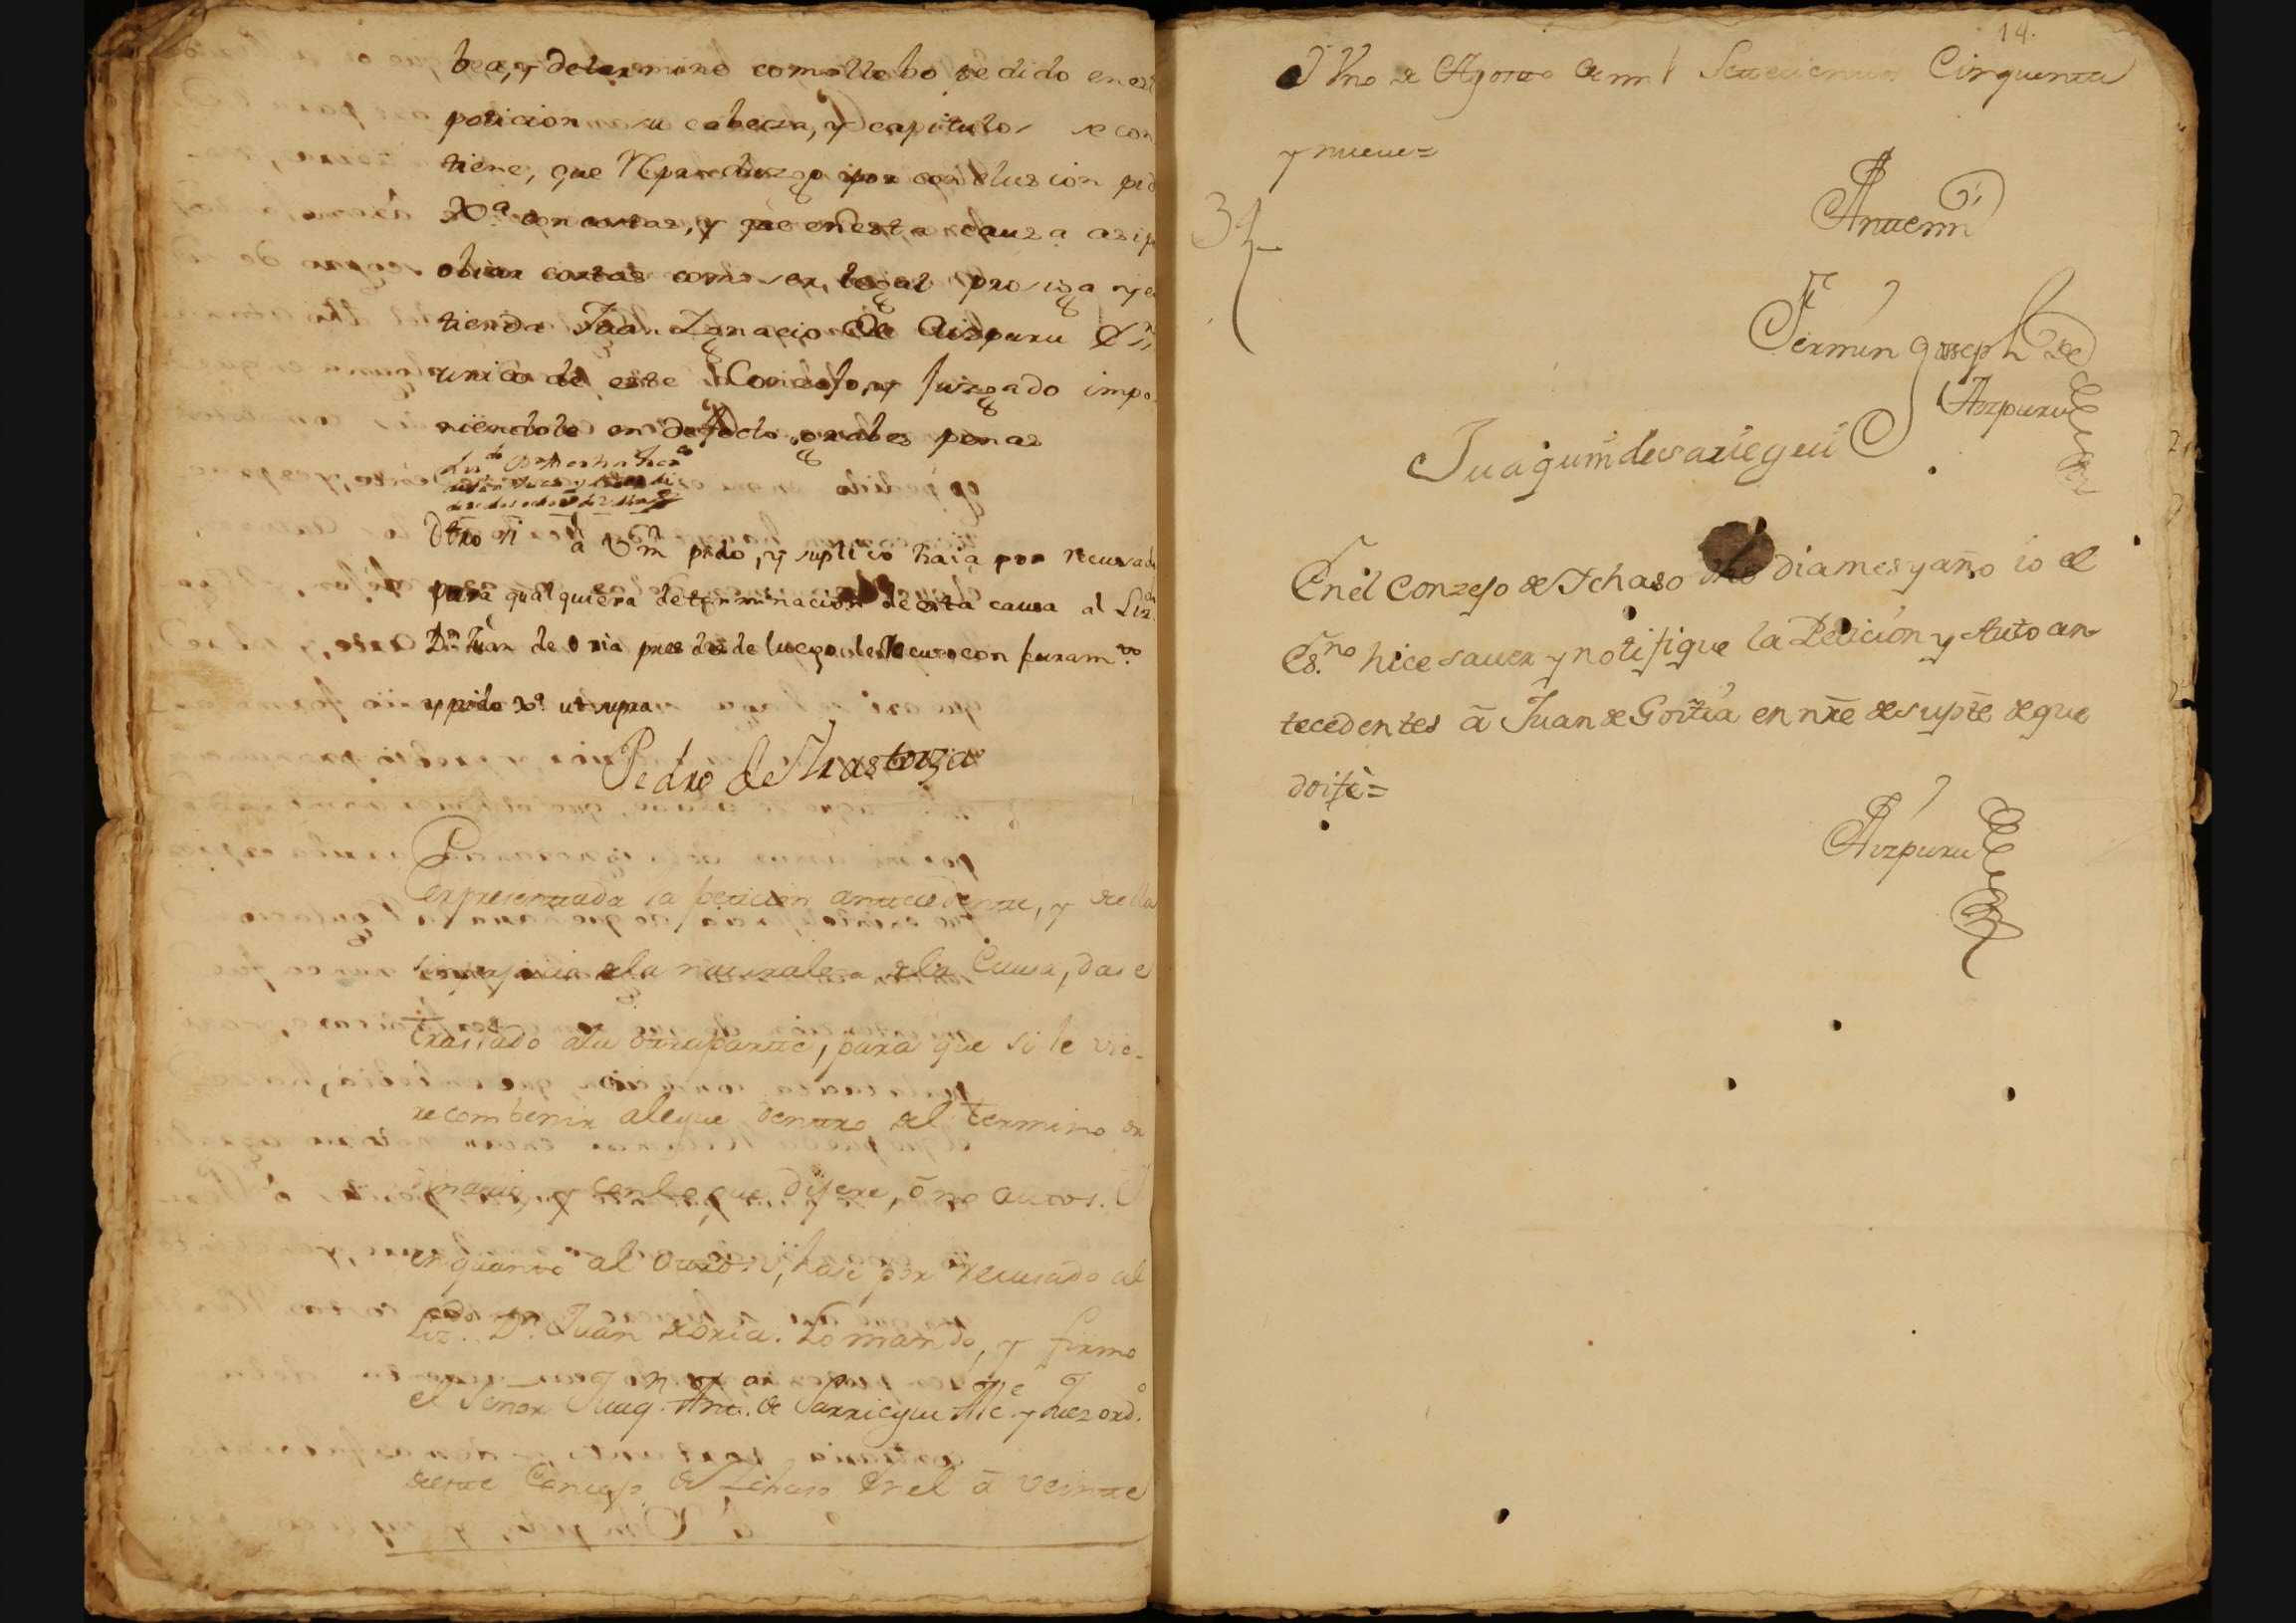 bea, y determine como llebo pedido en est
peticion su cabeza, y capitulos se con
tiene, que Reproduzgo por conclusion pid
Xª con costas, y que en esta causa asi p
obiar costas como ser, legal prosiga y e
tienda Juan Ignacio de Aizpuru
unico de este Concejo, y Juzgado impo
niendole en defecto grabes penas
Otro si a Vm pido, y suplico haia por recusad
para qualquiera determinacion de esta causa al Liz.do
Dn Juan de Oria pues desde luego le Recuso con juram.to
y pido Xª ut supra
Pedro de Urastorza
Por presentada la peticion antecedente, y de ella
sin perjuicio de la naturaleza de la Causa, dase
traslado a la otra parte, para que si le vie-
re combenir alegue dentro del termino or
dinario, y con lo que dijere, ō no autos. Y
en quanto al otro si, hase por recusado al
Liz.do Dn Juan de Oria. Lo mando, y firmo
el Señor Juaqn Antº de Sarriegui Alce y Juez ordº
de este Concejo de Ichaso en el ā veinte
14.
y Uno de Agosto de mil Setecientos Cinquenta
y nueue=
Antemi
Fermin Joseph de
Aizpuru
Juaquin de Sariegui
En el Conzejo de Ichaso dho dia mes y año io el
Es.no hice sauer y notifique la Peticion y Auto an-
tecedentes ā Juan de Goitia en nre de su pte de que
doi fe=
Aizpuru